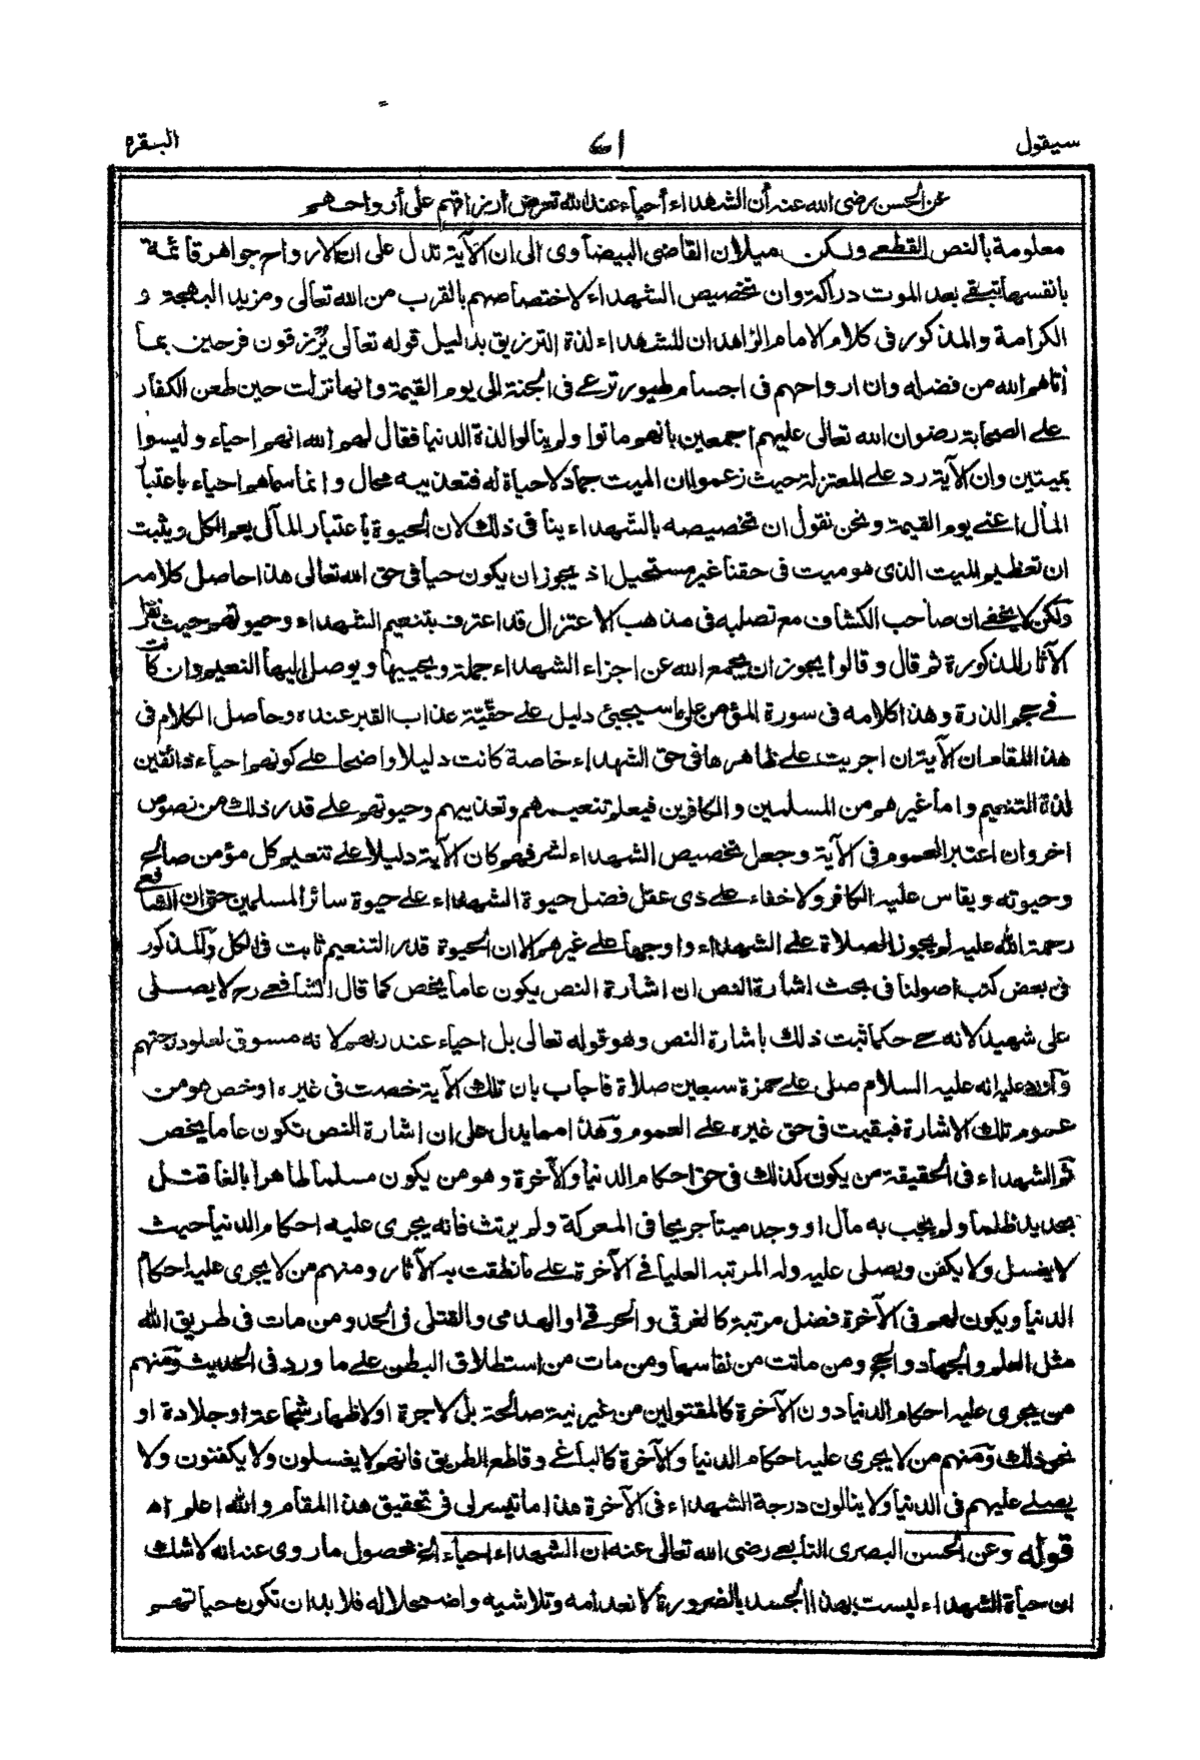 سيقول
٤١
البقره
عن الحسن رضى الله عنه أن الشهداء أحياء عند الله تعرض أرزاقهم على أرواحهم
معلومة بالنص القطعى ولكن ميلان القاضى البيضاوى الى ان الآية تدل على ان الارواح جواهر قائمة
بانفسها تبقى بعد الموت دراكة وان تخصيص الشهداء لاختصاصهم بالقرب من الله تعالى ومزيد البهجة و
الكرامة والمذكور فى كلام الامام الزاهد ان للشهداء لذة الترزيق بدليل قوله تعالى يُرزقون فرحين بما
أتاهم الله من فضله وان ارواحهم فى اجسام طيور ترعى فى الجنة الى يوم القيمة وانها نزلت حين طعن الكفار
على الصحابة رضوان الله تعالى عليهم اجمعين بانهم ماتوا ولم ينالوا لذة الدنيا فقال لهم الله انهم احياء وليسوا
بميتين وان الآية رد على المعتزلة حيث زعموا ان الميت جماد لاحياة له فتعذيبه محال وانما سماهم احياء باعتبا
المأل اعنى يوم القيمة ونحن نقول ان تخصيصه بالشهداء ينافى ذلك لان الحيوة باعتبار المأل يعم الكل ويثبت
ان تعظيم الميت الذى هو ميت فى حقنا غير مستحيل اذ يجوز ان يكون حيا فى حق الله تعالى هذا حاصل كلامه
ولكن لا يخفى ان صاحب الكشاف مع تصلبه فى مذهب الاعتزال قد اعترف بتنعيم الشهداء وحيوتهم حيث نقل
الآثار المذكورة ثم قال وقالوا يجوز ان يجمع الله عن اجزاء الشهداء جملة ويحييها ويوصل اليها النعيم وان كانت
فى حجم الذرة وهذا كلامه فى سورة المؤمن على ما سيجيئ دليل على حقّية عذاب القبر عنده وحاصل الكلام فى
هذا المقام ان الآية ان اجريت على ظاهرها فى حق الشهداء خاصة كانت دليلا واضحا على كونهم احياء ذائقين
لذة التنعيم واما غيرهم من المسلمين والكافرين فيعلم تنعيمهم وتعذيبهم وحيوتهم على قدر ذلك من نصوص
اخر وان اعتبر العموم فى الآية وجعل تخصيص الشهداء لشرفهم كان الآية دليلا على تنعيم كل مؤمن صالح
وحيوته ويقاس عليه الكافر ولا خفاء على ذى عقل فضل حيوة الشهداء على حيوة سائر المسلمين حتى ان الشافعى
رحمة الله عليه لم يجوز الصلاة على الشهداء واوجبها على غيرهم الا ان الحيوة قدر التنعيم ثابت فى الكل والمذكور
فى بعض كتب اصولنا فى بحث اشارة النص ان اشارة النص يكون عاما يخص كما قال الشافعى رح لا يصلى
على شهيد لانه حى حكما ثبت ذلك باشارة النص وهو قوله تعالى بل احياء عند ربهم لانه مسوق لعلو درجتهم
واورد عليه انه عليه السلام صلى على حمزة سبعين صلاة فاجاب بان تلك الآية خصت فى غيره او خص هو من
عموم تلك الاشارة فبقيت فى حق غيره على العموم وهذا مما يدل على ان اشارة النص تكون عاما يخص
ثم الشهداء فى الحقيقة من يكون كذلك فى حق احكام الدنيا والآخرة وهو من يكون مسلما طاهرا بالغا قتل
بحديد ظلما ولم يجب به مال او وجد ميتا جريحا فى المعركة ولم يرتث فانه يجرى عليه احكام الدنيا حيث
لا يغسل ولا يكفن ويصلى عليه وله المرتبة العليا فى الآخرة على ما نطقت به الآثار ومنهم من لا يجرى عليه احكام
الدنيا ويكون لهم فى الآخرة فضل مرتبة كالغرقى والحرقى او الهدمى والقتلى فى الجد ومن مات فى طريق الله
مثل العلم والجهاد والحج ومن ماتت من نفاسها ومن مات من استطلاق البطن على ما ورد فى الحديث ومنهم
من يجرى عليه احكام الدنيا دون الآخرة كالمقتولين من غير نية صالحة بل لاجرة اولاظهار شجاعة او جلادة او
نحو ذلك ومنهم من لا يجرى عليه احكام الدنيا والآخرة كالباغى وقاطع الطريق فانهم لا يغسلون ولا يكفنون ولا
يصلى عليهم فى الدنيا ولا ينالون درجة الشهداء فى الآخرة هذا ما تيسر لى فى تحقيق هذا المقام والله اعلم اه
قوله وعن الحسن البصرى التابعى رضى الله تعالى عنه ان الشهداء احياء الخ محصول ما روى عنه انه لا شك
ان حياة الشهداء ليست بهذا الجسد بالضرورة لانعدامه وتلاشيه واضمحلاله فلا بد ان تكون حياتهم